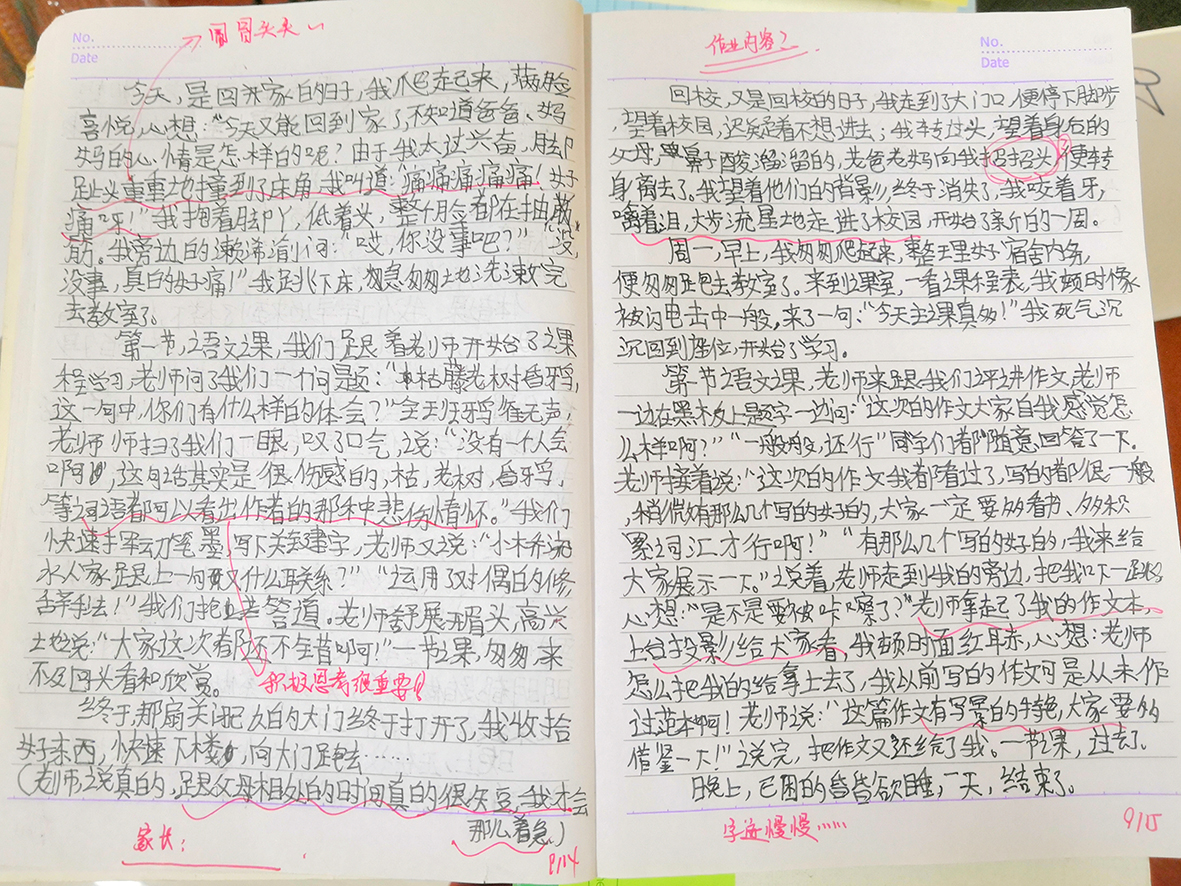 No.
Date
今天,是回来家的日子,我爬起来,满脸
喜悦,心想:“今天又能回到家了,不知道爸爸、妈
妈的心情是怎样的呢?由于我太过兴奋,脚
趾头重重地撞到了床角,我叫道:“痛痛痛痛痛!好
痛呀!”我抱着脚丫,低着头,整个脸都在抽
筋。我旁边的问:“哎,你没事吧?”“没,
没事,真的好痛!”我跳下床,急匆匆地洗漱完
去教室了。
第一节,语文课,我们跟着老师开始了课
程学习,老师问了我们一个问题:“枯藤老树昏鸦,
这一句中,你们有什么样的体会?”全班鸦雀无声,
老师师扫了我们一眼,叹了口气,说:“没有一个人会
啊,这句话其实是很伤感的,枯,老树,昏鸦,
等词语都可以看出作者的那种悲伤情怀。”我们
快速于挥动笔墨,写下关键字,老师又说:“小桥流
水人家跟上一句又什么联系?”“运用了对偶的修
辞手法!”我们抢答道。老师舒展开眉头,高兴
地说:“大家这次都还不错啊!”一节课,匆匆,来
不及回头看和欣赏。
积极思考很重要!
终于,那扇关闭已久的大门终于打开了,我收拾
好东西,快速下楼,向大门跑去……
(老师,说真的,跟父母相处的时间真的很短,我才会
那么着急。)
家长:
9/14
作业内容?
No.
Date
回校,又是回校的日子,我走到了大门口,便停下脚步
,望着校园,迟疑着不想进去;我转过头,望着身后的
父母,鼻子酸溜溜的,老爸老妈向我招招头,便转
身离去了。我望着他们的背影,终于消失了,我咬着牙,
噙着泪,大步流星地走进了校园,开始了新的一周。
周一,早上,我匆匆爬起来,整理好宿舍内务,
便匆匆跑去教室了。来到课室,一看课程表,我顿时像
被闪电击中一般,来了一句:“今天主课真多!”我死气沉
沉回到座位,开始了学习。
第一节语文课,老师来跟我们评讲作文,老师
一边在黑板上题字一边问:“这次的作文大家自我感觉怎
么样啊?”“一般般,还行”同学们都随意回答了一下。
老师接着说:“这次的作文我都看过了,写的都很一般
,稍微有那么几个写的好的,大家一定要多看书、多积
累词汇才行啊!”“有那么几个写的好的,我来给
大家展示一下。”说着,老师走到我的旁边,把我吓一跳,
心想:“是不是要被咔嚓了?”老师拿起了我的作文本,
上台投影给大家看,我顿时面红耳赤,心想:老师
怎么把我的给拿上去了,我以前写的作文可是从未作
过范本啊!老师说:“这篇作文有写景的特色,大家要多
借鉴一下!”说完,把作文又还给了我。一节课,过去了。
晚上,已困的昏昏欲睡,一天,结束了。
字迹慢慢……
9/15